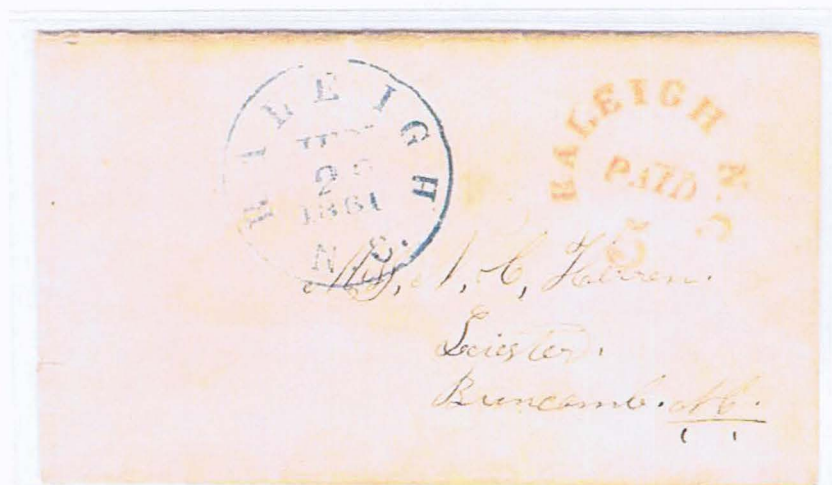 RALEIGH
JUN
1861
N.C.
RALEIGH N.C
PAID
5
A, C,
Leicester.
Buncomb. N.C.